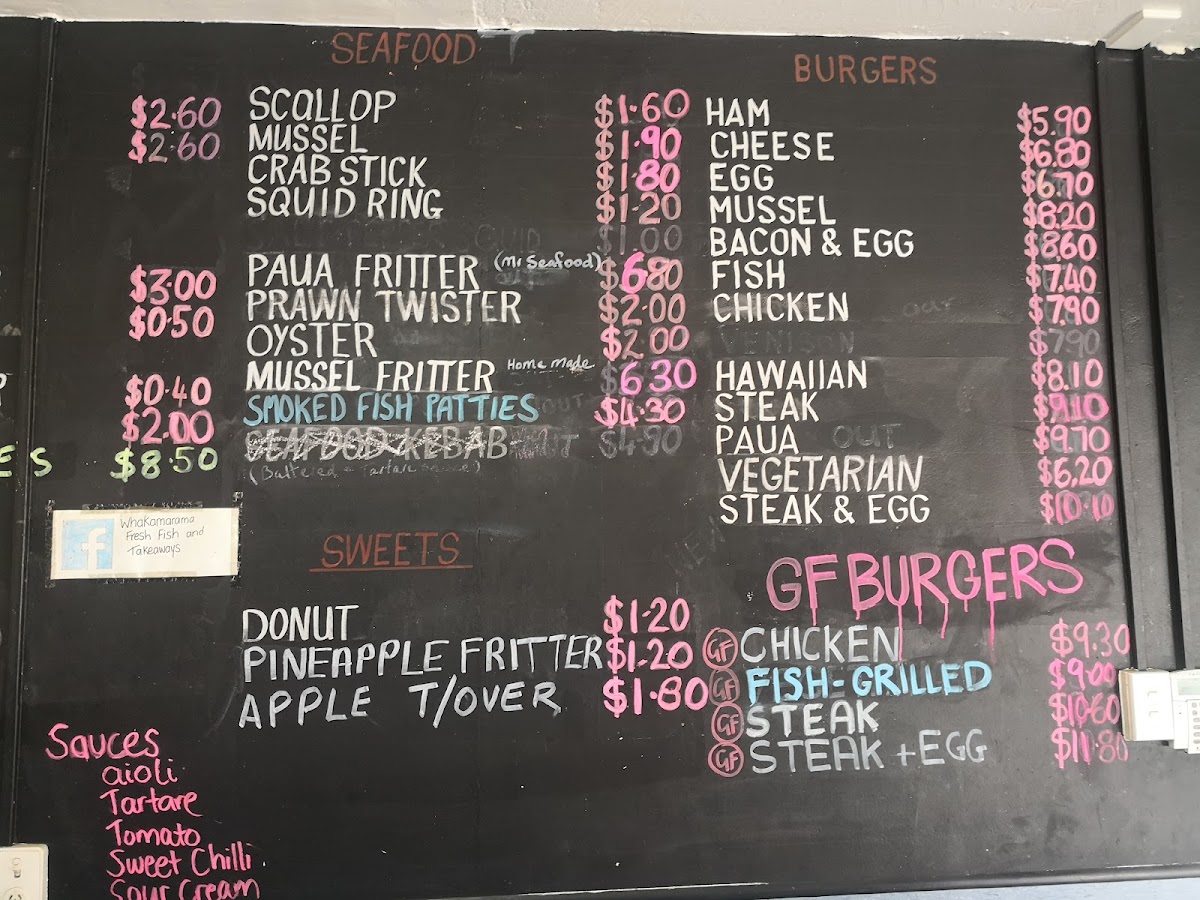 SEAFOOD
$2.60
$2.60
$3.00
$0.50
$0.40
$2.00
ES $8.50
SCALLOP $1.60
MUSSEL $1.90
CRAB STICK $1.80
SQUID RING $1.20
SQUID $1.00
PAUA FRITTER (Mr Seafood) $6.80
PRAWN TWISTER $2.00
OYSTER $2.00
MUSSEL FRITTER Home made $6.30
SMOKED FISH PATTIES $4.30
SEAFOOD KEBAB OUT $4.90
(Battered + Tartare sauce)
Whakamarama
Fresh Fish and
Takeaways
SWEETS
DONUT $1.20
PINEAPPLE FRITTER $1.20
APPLE T/OVER $1.80
Sauces
aioli
Tartare
Tomato
Sweet Chilli
Sour Cream
BURGERS
HAM $5.90
CHEESE $6.80
EGG $6.70
MUSSEL $8.20
BACON & EGG $8.60
FISH $7.40
CHICKEN $7.90
VENISON $7.90
HAWAIIAN $8.10
STEAK $9.10
PAUA OUT $9.70
VEGETARIAN $6.20
STEAK & EGG $10.10
GF BURGERS
GF CHICKEN $9.30
GF FISH-GRILLED $9.00
GF STEAK $10.60
GF STEAK + EGG $11.80